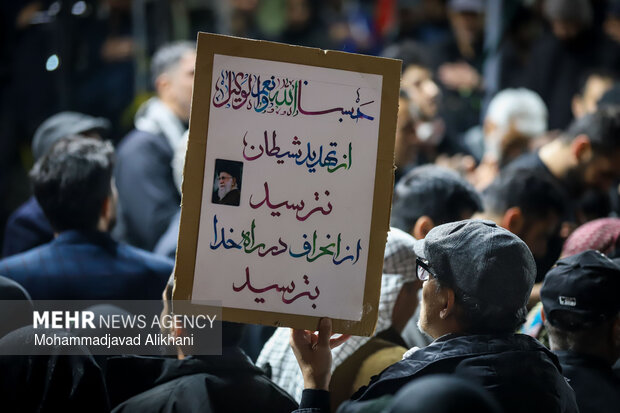 حسبنا الله و نعم الوکیل
از تهدید شیطان
نترسید
از انحراف در راه خدا
بترسید
MEHR NEWS AGENCY
Mohammadjavad Alikhani